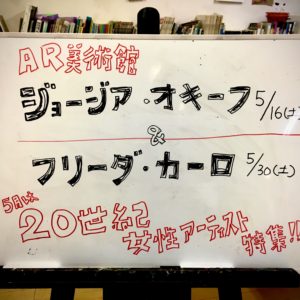 AR美術館
ジョージア・オキーフ 5/16(土)
&
フリーダ・カーロ 5/30(土)
5月は
20世紀
女性アーティスト
特集!!